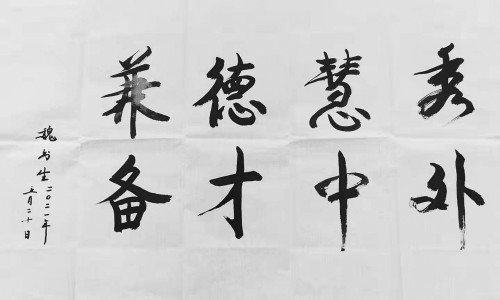 秀外
慧中
德才
兼备
魏书生二〇二一年
五月二十日